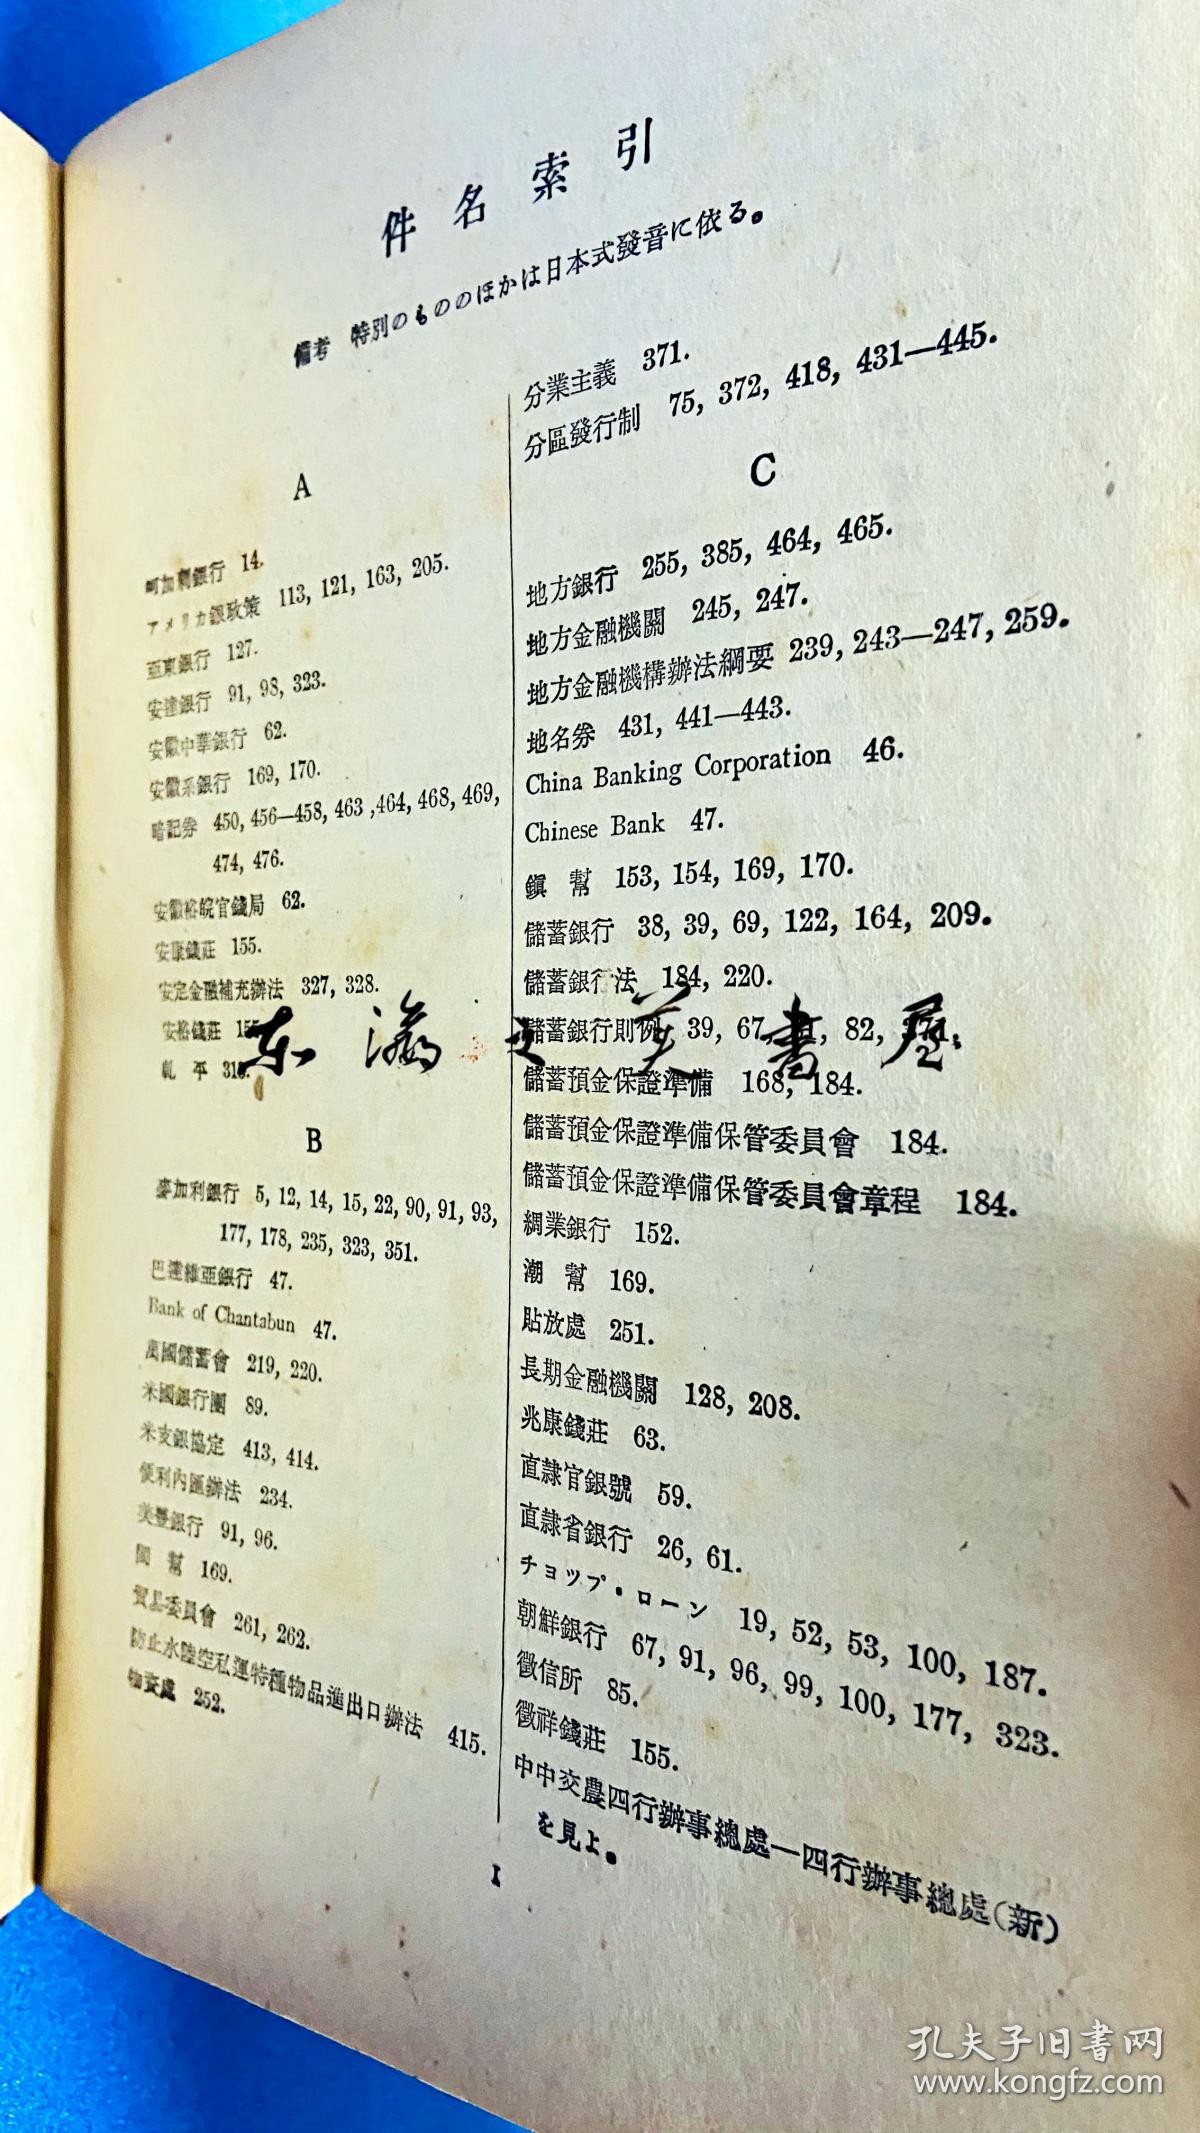 件名索引
備考 特別のもののほかは日本式發音に依る。
A
呵加剌銀行 14.
アメリカ銀政策 113, 121, 163, 205.
亞東銀行 127.
安達銀行 91, 98, 323.
安徽中華銀行 62.
安徽系銀行 169, 170.
暗記券 450, 456—458, 463 ,464, 468, 469,
474, 476.
安徽裕皖官錢局 62.
安康錢莊 155.
安定金融補充辦法 327, 328.
安裕錢莊
軋平
B
麥加利銀行 5, 12, 14, 15, 22, 90, 91, 93,
177, 178, 235, 323, 351.
巴達維亞銀行 47.
Bank of Chantabun 47.
萬國儲蓄會 219, 220.
米國銀行團 89.
米支銀協定 413, 414.
便利內匯辦法 234.
美豐銀行 91, 96.
閩幫 169.
貿易委員會 261, 262.
防止水陸空私運特種物品進出口辦法 415.
物資處 252.
分業主義 371.
分區發行制 75, 372, 418, 431—445.
C
地方銀行 255, 385, 464, 465.
地方金融機關 245, 247.
地方金融機構辦法綱要 239, 243—247, 259.
地名券 431, 441—443.
China Banking Corporation 46.
Chinese Bank 47.
鎭幫 153, 154, 169, 170.
儲蓄銀行 38, 39, 69, 122, 164, 209.
儲蓄銀行法 184, 220.
儲蓄銀行則例 39, 67, 82,
儲蓄預金保證準備 168, 184.
儲蓄預金保證準備保管委員會 184.
儲蓄預金保證準備保管委員會章程 184.
綢業銀行 152.
潮幫 169.
貼放處 251.
長期金融機關 128, 208.
兆康錢莊 63.
直隷官銀號 59.
直隷省銀行 26, 61.
チョップ・ローン 19, 52, 53, 100, 187.
朝鮮銀行 67, 91, 96, 99, 100, 177, 323.
徵信所 85.
徵祥錢莊 155.
中中交農四行辦事總處—四行辦事總處(新)
を見よ。
1
东瀛文美書屋
孔夫子旧書网
www.kongfz.com